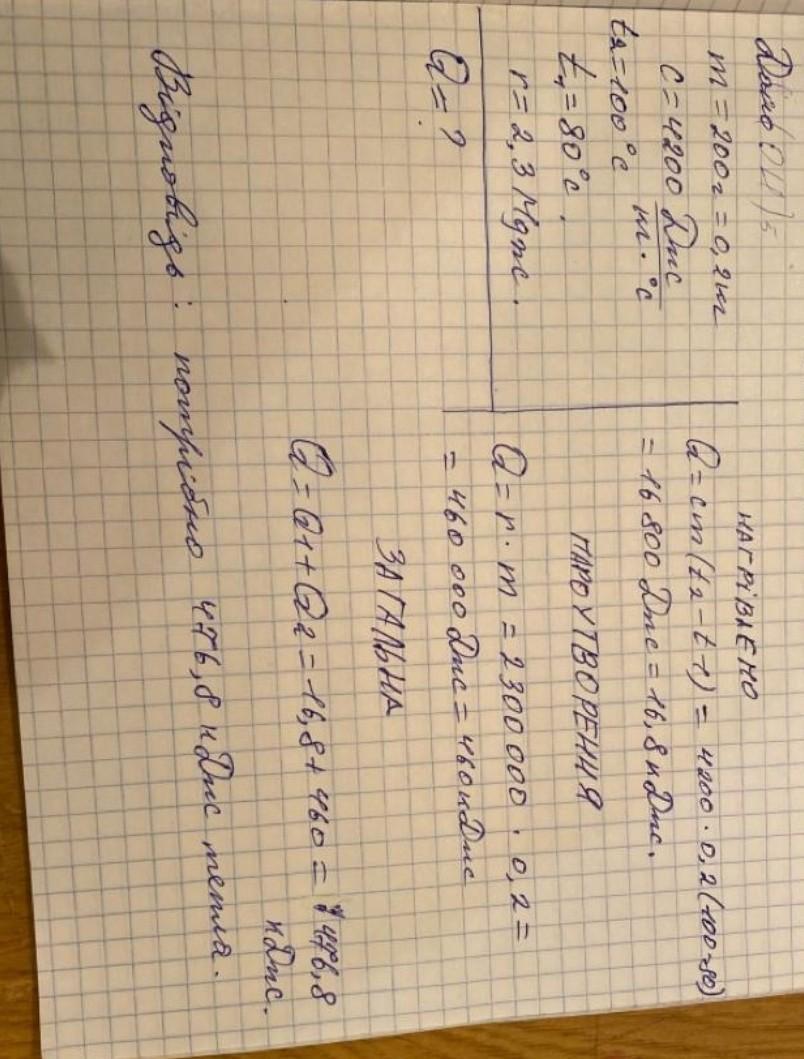 Дано (СИ):
m = 200г = 0,2кг
c = 4200 Дж
кг · °C
t2 = 100°C
t1 = 80°C.
r = 2,3 Мдж.
Q = ?
НАГРІВЛЕНО
Q = cm(t2 - t1) = 4200 · 0,2(100-80)
= 16 800 Дж = 16,8 кДж.
ПАРОУТВОРЕННЯ
Q = r · m = 2300000 · 0,2 =
= 460 000 Дж = 460 кДж
ЗАГАЛЬНА
Q = Q1 + Q2 = 16,8 + 460 = 476,8
кДж.
Відповідь: потрібно 476,8 кДж тепла.